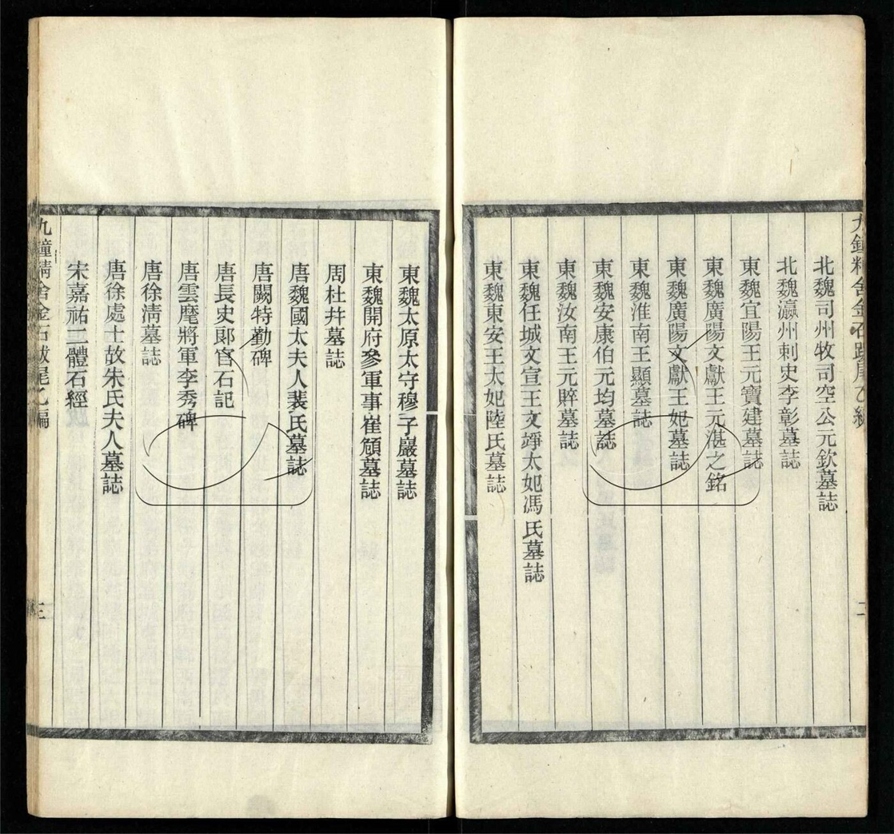 九鐘精舍金石跋尾乙編
北魏司州牧司空公元欽墓誌
北魏瀛州刺史李彰墓誌
東魏宜陽王元寶建墓誌
東魏廣陽文獻王元湛之銘
東魏廣陽文獻王妃墓誌
東魏淮南王顯墓誌
東魏安康伯元均墓誌
東魏汝南王元賥墓誌
東魏任城文宣王文竫太妃馮氏墓誌
東魏東安王太妃陸氏墓誌
二
東魏太原太守穆子巖墓誌
東魏開府參軍事崔頠墓誌
周杜幷墓誌
唐魏國太夫人裴氏墓誌
唐闕特勤碑
唐長史郎官石記
唐雲麾將軍李秀碑
唐徐清墓誌
唐徐處士故朱氏夫人墓誌
宋嘉祐二體石經
九鐘精舍金石跋尾乙編
三